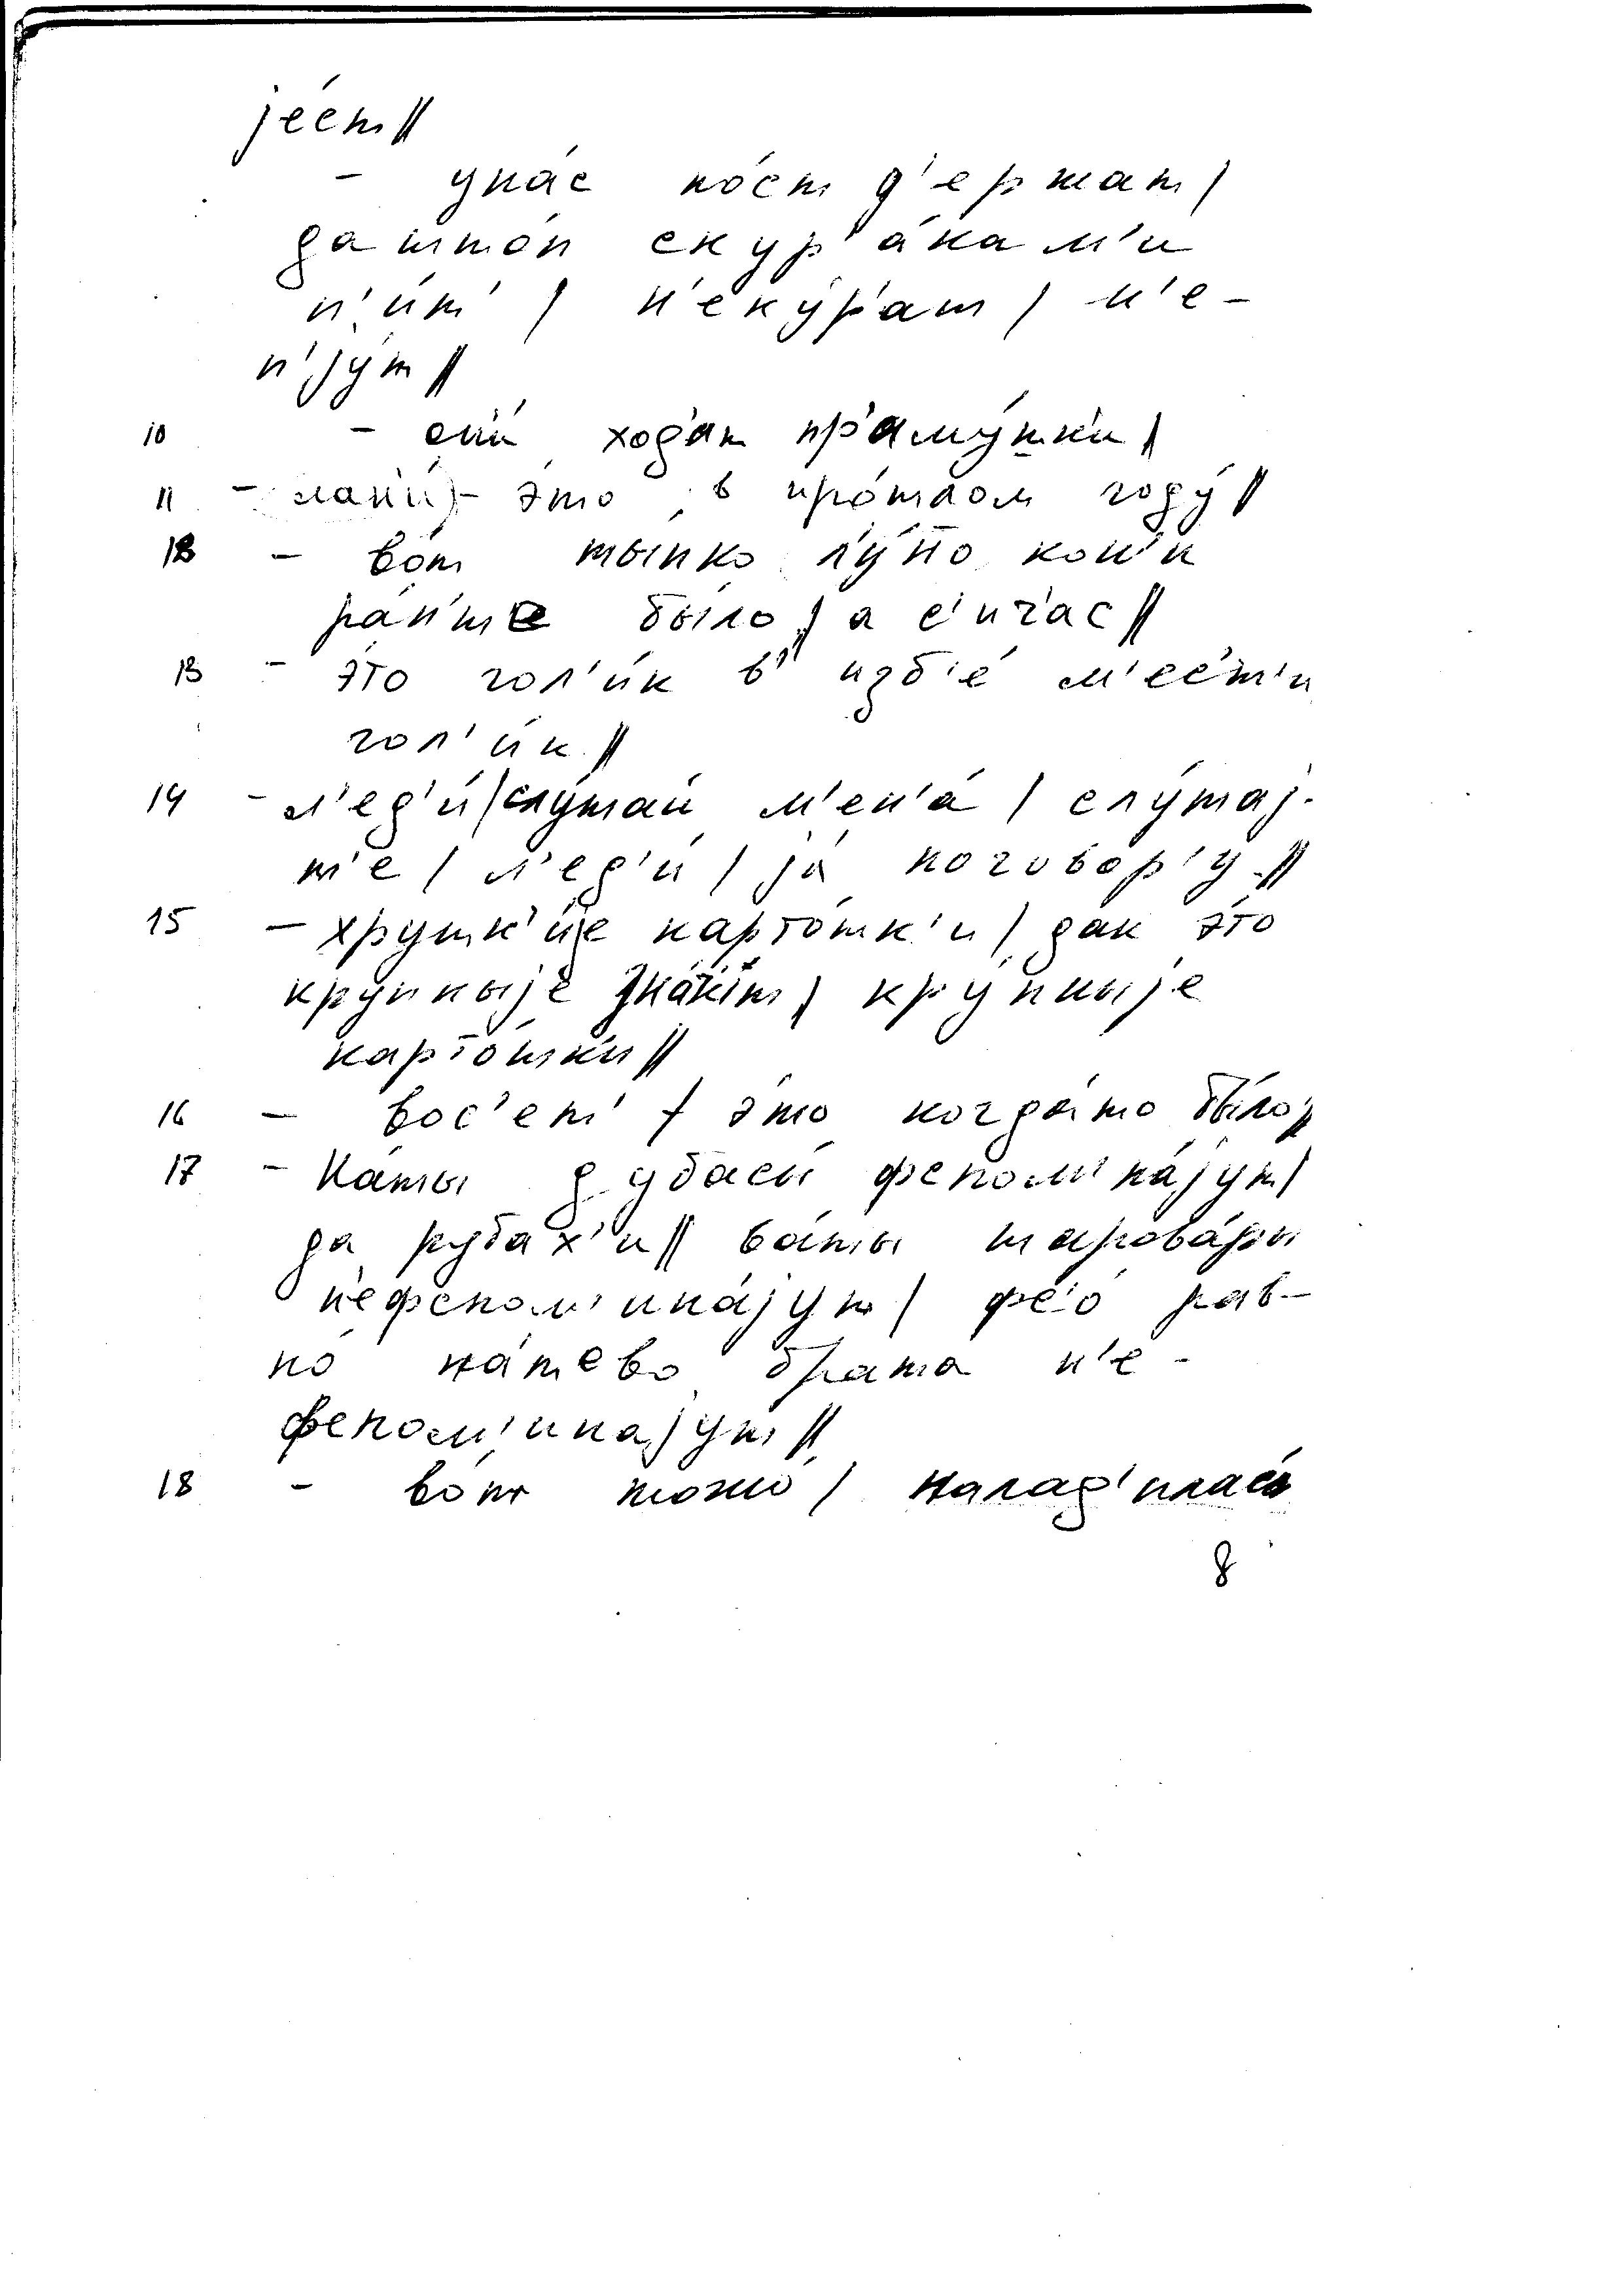 jéст//
– унáс пóст д'ержат/
даштóп скур'áкам'и
п'ит' / н'екýр'ат / н'е-
п'jýт //
10 – онй ход'ат пр'амýшк'и /
11 – лани) – это в прóшлом годý //
12 – вóт тыпко кон'и
рáн'ше бы́ло / а с'ич'ас //
13 – э́то гол'и́к в' изб'é м'ест'и́
гол'и́к //
14 – л'ед'и́ / слýшай м'ен'á / слýшаj-
т'е / л'ед'и́ / já поговор'ý //
15 – хрушк'и́jе картóшк'и / дак э́то
крýпныjе знáч'ит / крýпныjе
картóшк'и //
16 – вос'ет' / э́то когдáто бы́ло //
17 – нáшы дубасы́ фспом'инájут /
да рубах'и // вáшы шаровáры
н'ефспом'инájут / фс'ó рав-
нó нáшево брата н'е-
фспом'инаjут //
18 – вóт тожнó / налад'илась
8